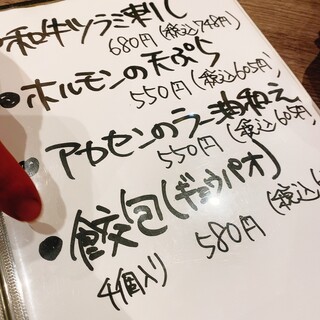 •和牛ツラミ刺し
680円(税込748円)
•ホルモンの天ぷら
550円(税込605円)
•アカセンのラー油和え
550円(税込605円)
•餃包(ギョウパオ)
4個入り 580円(税込